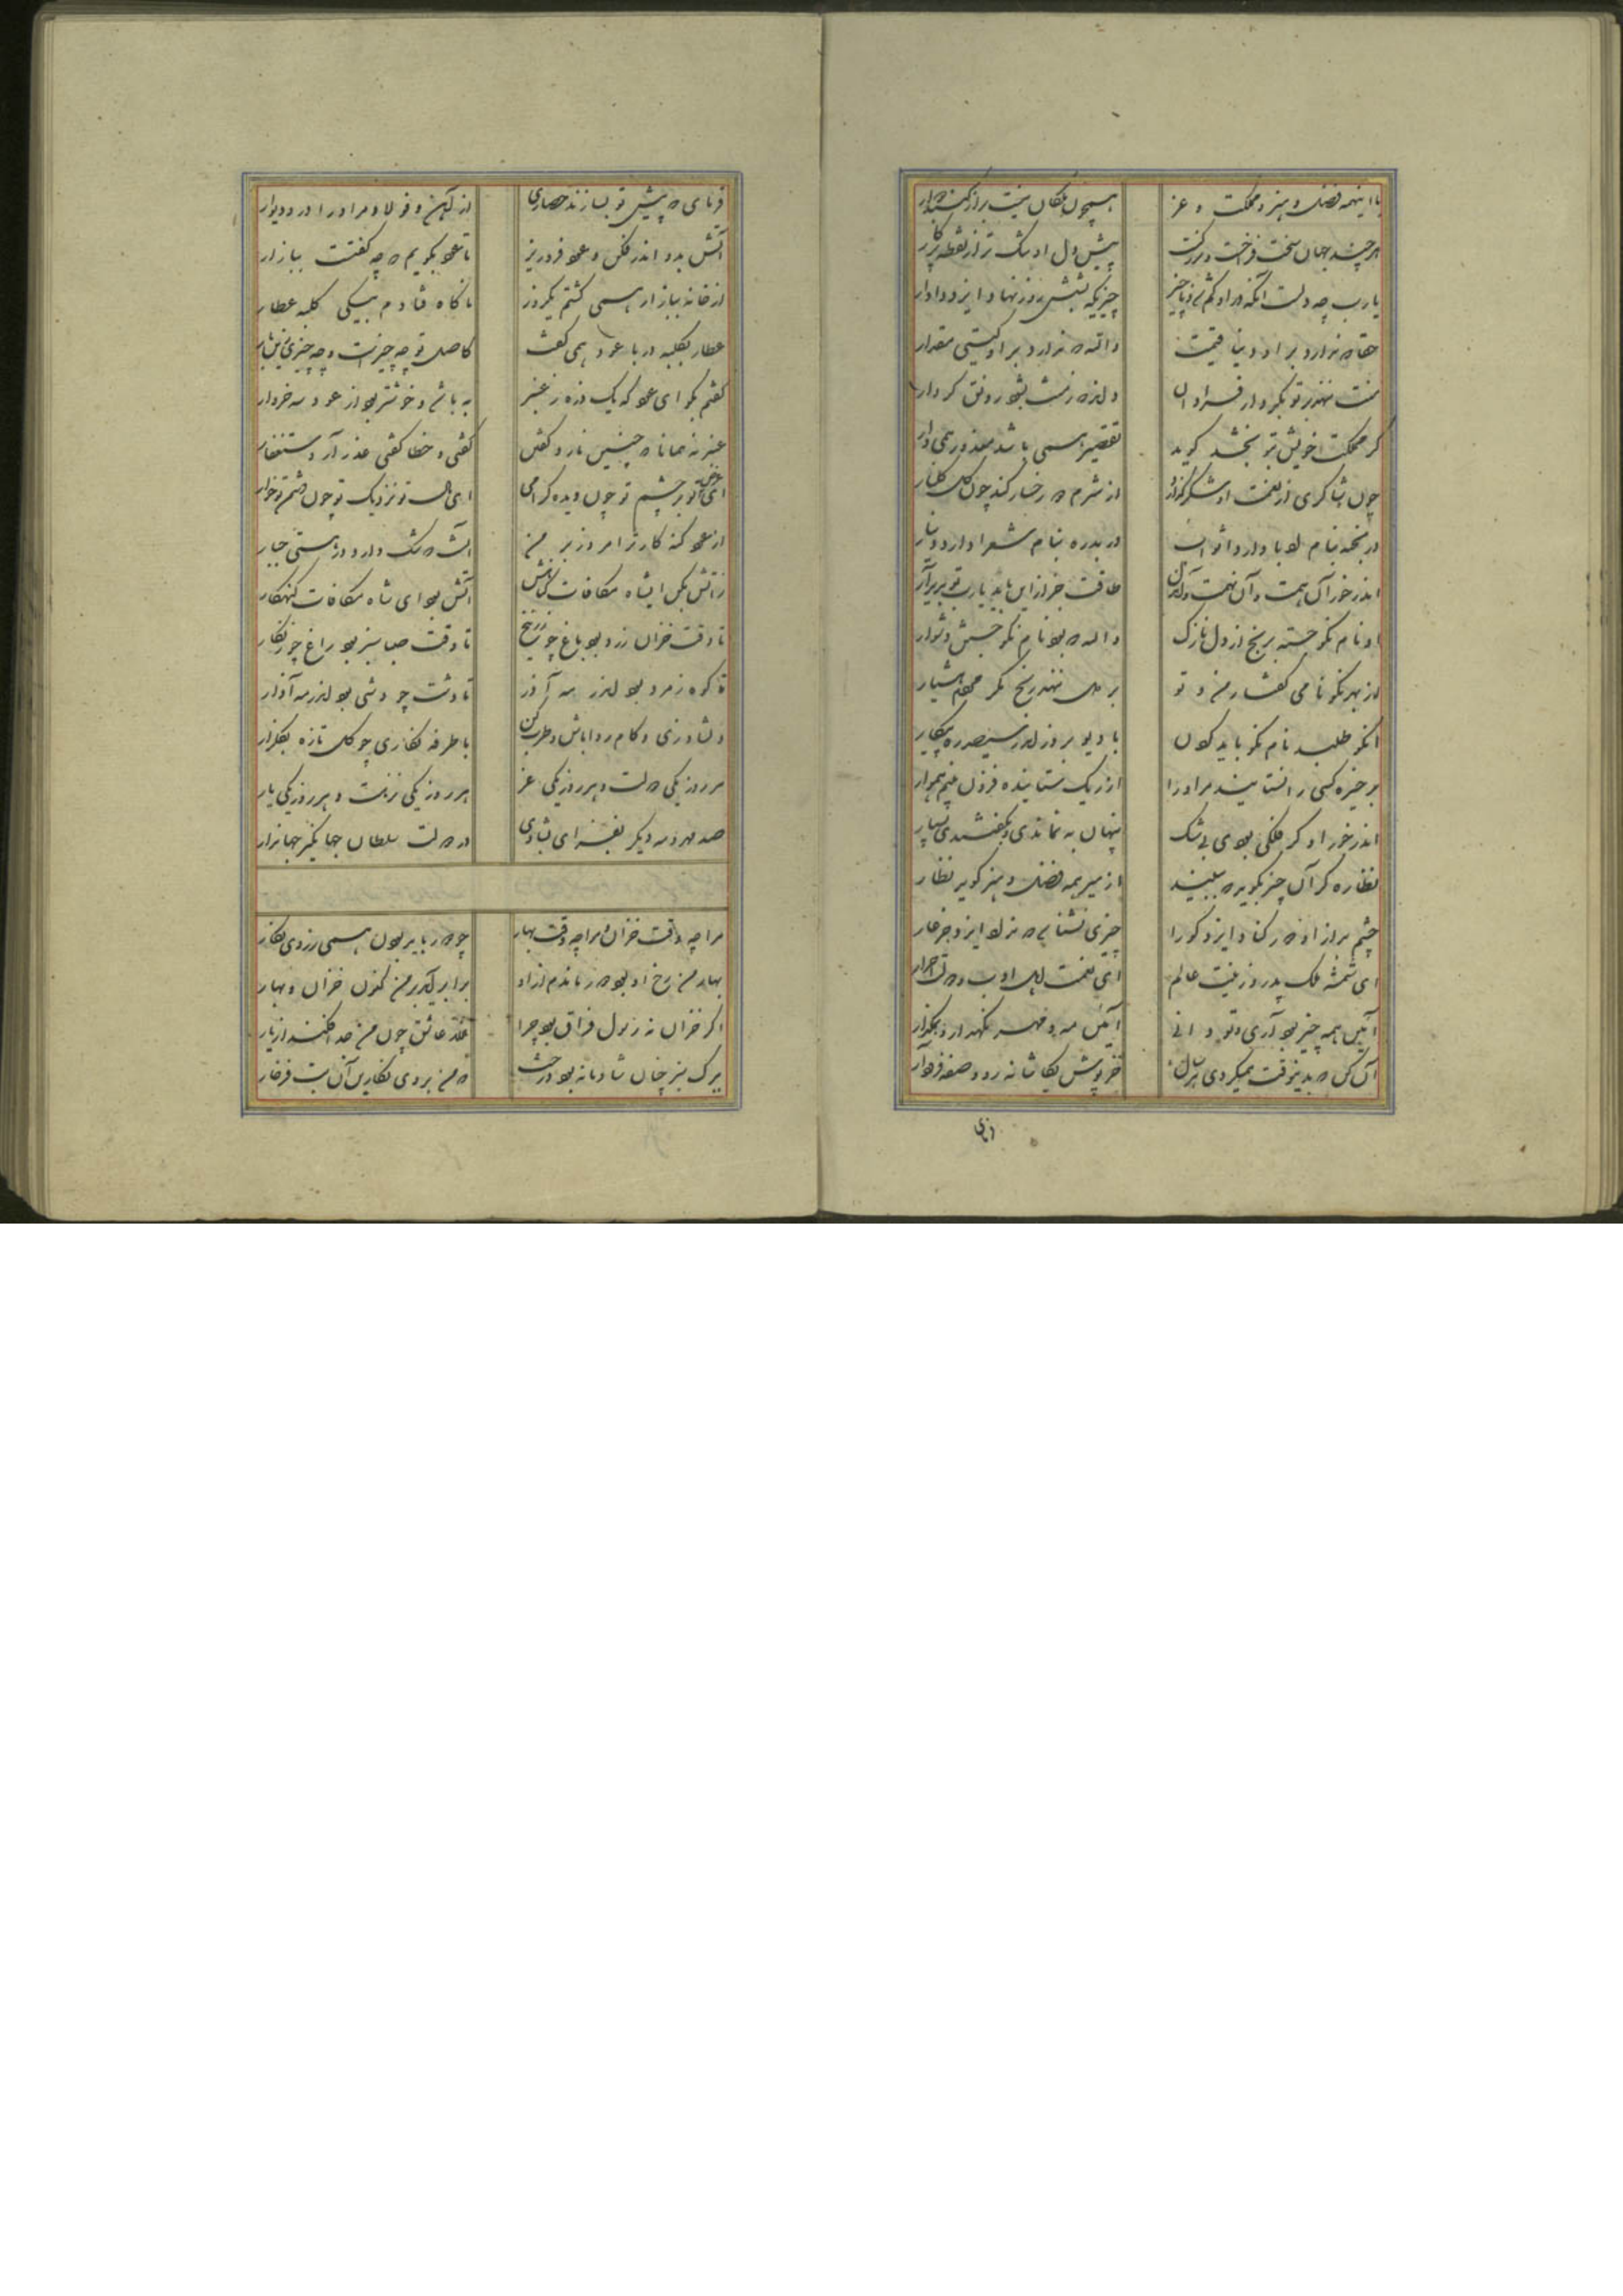 با اینهمه فضل و هنر و مملکت و عز
همچون ملکان نیست
هر چند جهان سخت فراخست و بزرگست
پیش دل او تنگ تر از نقطه پرکار
یا رب چه دلست آنکه در او گم
چیزیکه بشش روز نهاد ایزد دادار
حقا که ندارد بر او دنیا قیمت
والله که ندارد بر او گیتی مقدار
منت ننهد بر تو بکردار فراوان
وندر منت شود رونق کردار
گر مملکت خویش بتو بخشد گوید
تقصیر همی باشد معذور همی دار
چون شاکری از نعمت او شکر گزارد
از شرم که رخسار کند چون گل گلنار
اندر خور آن همت و آن نهمت
طاقت جز از این باید یا رب تو پدید آر
او نام نکو جسته برنج از دل نازک
والله که بود نام نکو جستن دشوار
از بهر نکو نامی گفتار من و تو
بر دل ننهد رنج مگر مردم هشیار
آنکو طلبد نام نکو باید کردن
با دیو بروز اندر سیصد ره پیکار
بر خیره کسی را نستایند مر او را
از زیک ستاینده فزون بینم هموار
اندر خور او گر ملکی بودی بی شک
پنهان به نماندی و بگفتندی بسیار
نظاره گر آن چیز بگوید که ببیند
از میر همه فضل و هنر گوید نظار
چشم بد از او دور کناد ایزد کو را
چیزی نشناسم که نداد ایزد جز عار
ای شمسه ملک پدر و زینت عالم
ای نعمت اهل ادب و دولت احرار
آیین همه چیز تو آری و تو دانی
آیین مه و مهر نگهدار و بمگذار
آن کن که بدینوقت همیکردی هر سال
خز پوش بکاشانه رو و صفه فرو آر
فرمای که پیش تو بسازند حصاری
از آهن و فولاد مر او را در و دیوار
آتش بدو اندر فکن و عود فرو ریز
تا عود بگویم که چه گفتست ببازار
از خانه ببازار همی گشتم یکروز
ناگاه فتادم بیکی کلبه عطار
عطار بکلبه در با عود همی گفت
کاصل تو چه چیزست و چه چیزی
گفتم بگو ای عود که یک ذره ز عنبر
به باشد و خوشتر بود از عود سه خروار
عنبر نه همانا که چنین یارد گفتن
گفتی و خطا گفتی عذر آر و استغفار
ای بر چشم تو چون دیده گرامی
ای مال تو نزدیک تو چون دشمن تو خوار
از عود گنه کارتر امروز بر من
آنست که شک دارد در هستی جبار
ز آتش بکن ایشاه مکافات گناهش
آتش بود ای شاه مکافات گنهکار
تا وقت خزان زرد بود باغ چو زرنیخ
تا وقت صبا سبز بود راغ چو زنگار
تا کوه زمرد بود اندر مه آذر
تا دشت چو وشی بود اندر مه آذار
دلشاد زی و کام روا باش و طرب کن
با طرفه نگاری چو گل تازه بگلزار
هر روز یکی دولت و هر روز یکی عز
هر روز یکی نزهت و هر روز یکی یار
صد مهر و سه دیگر بفزای بشادی
در دولت سلطان جهانگیر جهاندار
مرا چه وقت خزان و مرا چه وقت بهار
چو دور باید بودن همی ز روی نگار
بهار من رخ او بود دور ماندم از او
برابر آید بر من کنون خزان و بهار
اگر خزان نه رسول فراق بود چرا
هزار عاشق چون من جدا فکند از یار
ببرگ سبز چنان شادمانه بود درخت
که من بروی نگارین آن بت فرخار